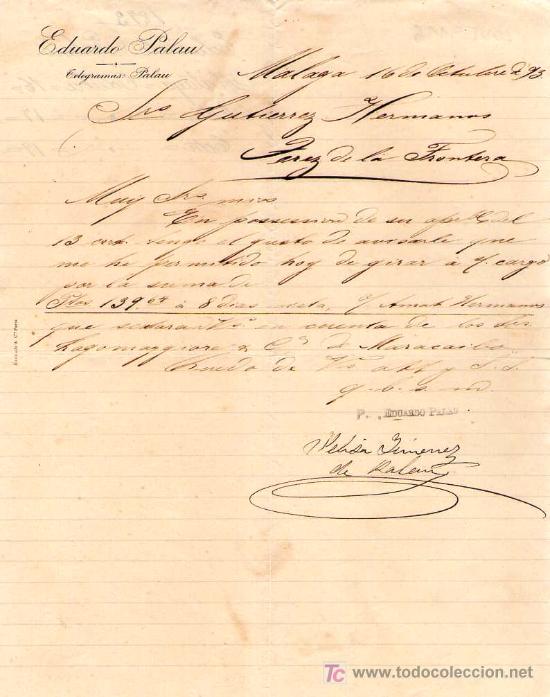 Eduardo Palau
Telegramas: Palau
Malaga 16 de Octubre de 93
Sres Gutierrez Hermanos
Jerez de la Frontera
Muy Sres mios
En possession de su apble del
13 cort. tengo el gusto de avisarle que
me he permitido hoy de girar à s/ cargo
por la suma de
Ptas 139.64 à 8 dias vista, o/ Amat Hermanos
que sentarán Vs en cuenta de los Sres
& Ca de Maracaibo
Quedo de Vs att y S. S.
q. b. s. m.
P. EDUARDO PALAU
Gimenez
de Palau
TC www.todocoleccion.net